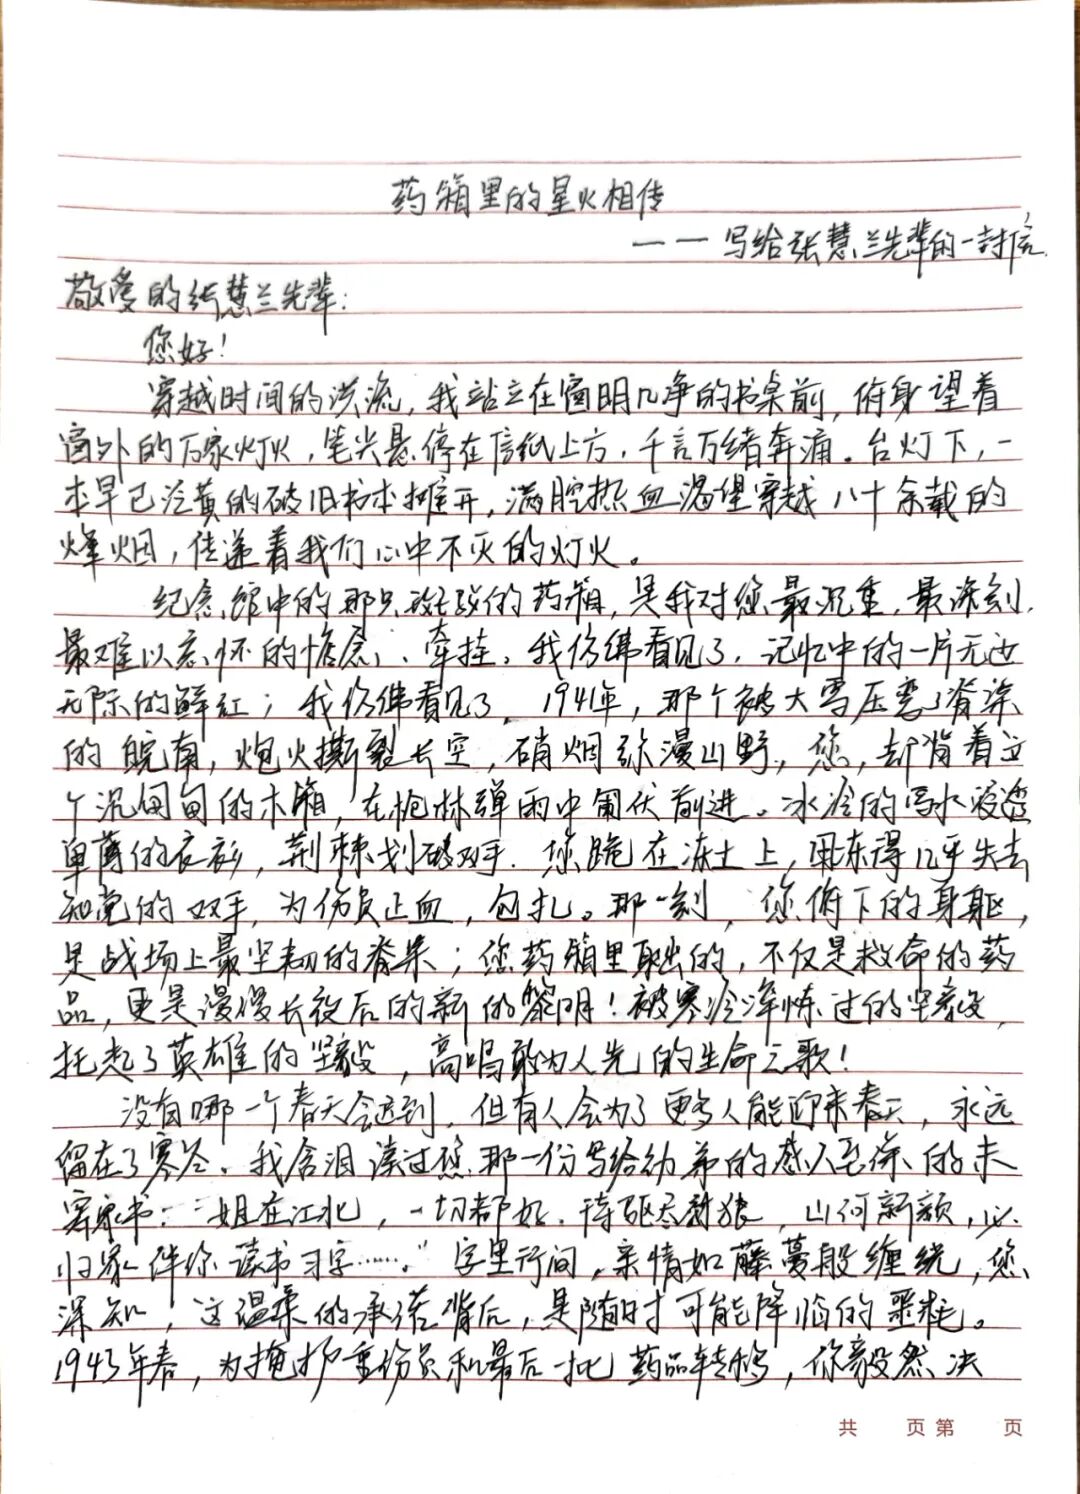 药箱里的星火相传
——写给张慧兰先辈的一封信
敬爱的张慧兰先辈：
您好！
穿越时间的洪流，我站立在窗明几净的书桌前，俯身望着
窗外的万家灯火，笔尖悬停在信纸上方，千言万绪奔涌。台灯下，一
本早已泛黄的破旧书本摊开，满腔热血渴望穿越八十余载的
烽烟，传递着我们心中不灭的灯火。
纪念馆中的那只破残的药箱，是我对您最沉重，最深刻，
最难以忘怀的惦念、牵挂。我仿佛看见了，记忆中的一片无边
无际的鲜红；我仿佛看见了，1941年，那个被大雪压弯了脊梁
的皖南，炮火撕裂长空，硝烟弥漫山野，您，却背着这
个沉甸甸的木箱，在枪林弹雨中匍伏前进。冰冷的雪水浸透
单薄的衣衫，荆棘划破双手，您跪在冻土上，用冻得几乎失去
知觉的双手，为伤员止血，包扎。那一刻，您俯下的身躯，
是战场上最坚韧的脊梁；您药箱里取出的，不仅是救命的药
品，更是漫漫长夜后的新的黎明！被寒冷淬炼过的坚毅，
托起了英雄的坚毅，高唱敢为人先的生命之歌！
没有哪一个春天会迟到，但有人会为了更多人能迎来春天，永远
留在了寒冬。我含泪读过您那一份写给幼弟的感人至深的未
寄家书：“姐在江北，一切都好，待驱尽豺狼，山河新颜，必
归家伴你读书习字……”字里行间，亲情如藤蔓般缠绕，您
深知，这温柔的承诺背后，是随时可能降临的噩耗。
1943年春，为掩护重伤员和最后一批药品转移，你毅然决
共 页 第 页